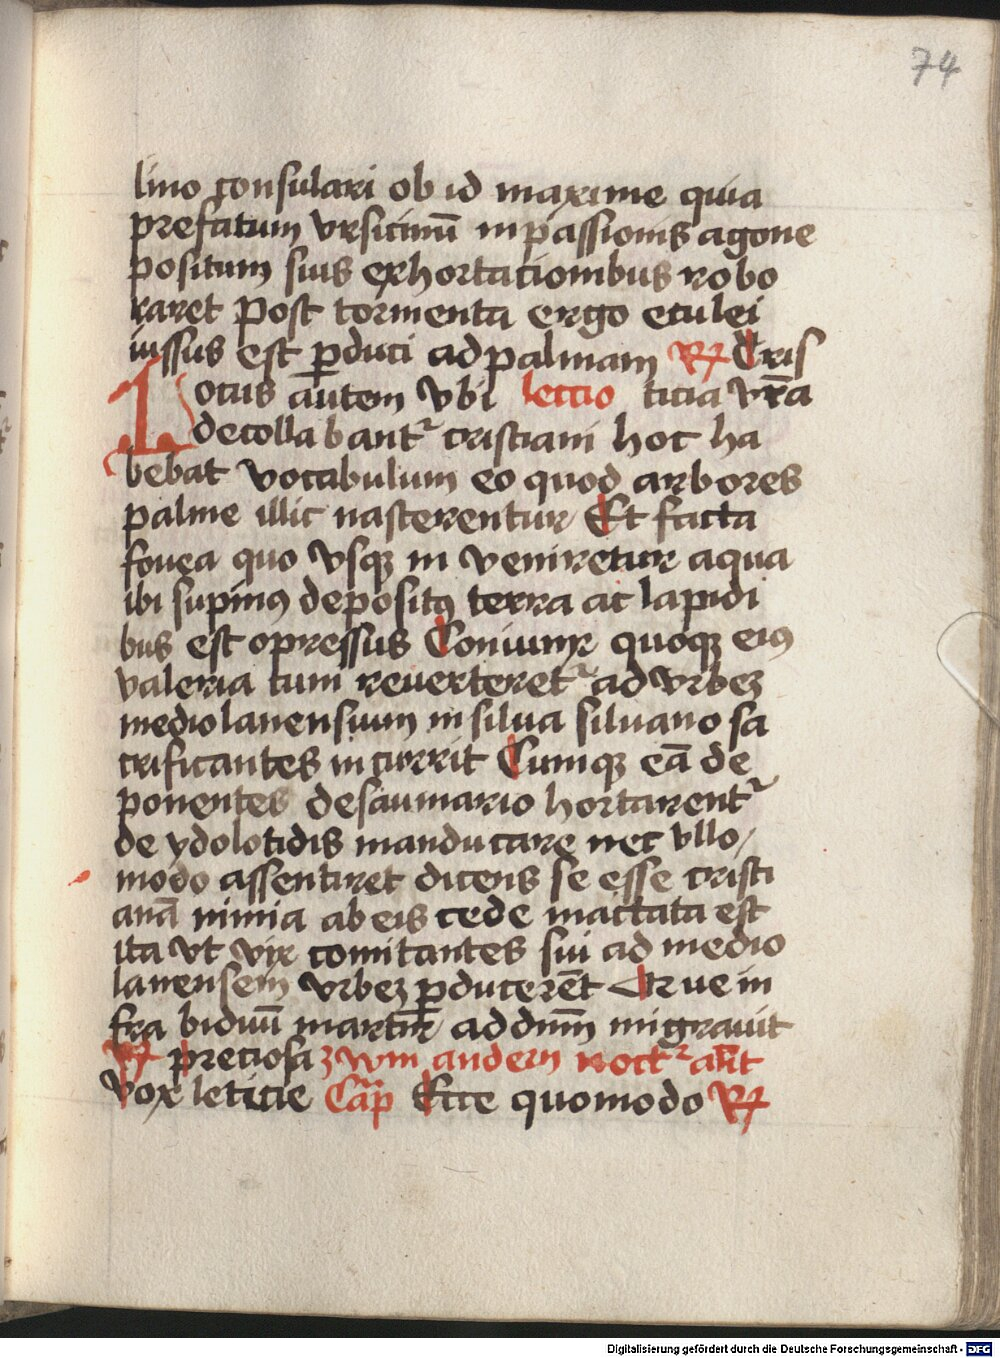 74
lino consulari ob id maxime quia
prefatum vrsicinū in passionis agone
positum suis exhortacionibus robo
raret Post tormenta ergo eculei
iussus est ꝑduci ad palmam ℟ Tris
Locus autem vbi lectio ticia vr̄a
decollabantᷣ cristiani hoc ha
bebat vocabulum eo quod arbores
palme illic nascerentur Et facta
fouea quo vsqꝫ in veniretur aqua
ibi supinꝯ depositꝯ terra ac lapidi
bus est opressus Coniunx quoqꝫ eiꝯ
valeria cum reuerteretᷣ ad vrbeꝫ
mediolanensium in silua siluano sa
crificantes incurrit Cumqꝫ eā de
ponentes de saumario hortarentᷣ
de ydolotidis manducare nec vllo
modo assentiret dicens se esse cristi
anā nimia ab eis cede mactata est
ita vt vix comitantes sui ad medio
lanensem vrbeꝫ ꝑducerēt Que in
fra biduū martir ad dnm̄ migrauit
℟ preciosa zwm andern noctᷣ an̄t
vox leticie Cap̄ Ecce quomodo ℟
Digitalisierung gefördert durch die Deutsche Forschungsgemeinschaft - DFG